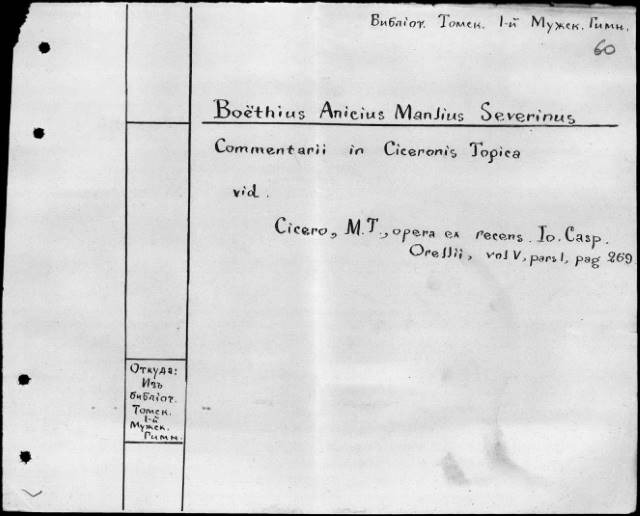 Библіот. Томск. 1-й Мужск. Гимн.
60
Boëthius Anicius Manlius Severinus
Commentarii in Ciceronis Topica
vid.
Cicero, M.T., opera ex recens. Io. Casp.
Orellii, vol V, pars I, pag 269
Откуда:
Изъ
библіот.
Томск.
1-й
Мужск.
Гимн.